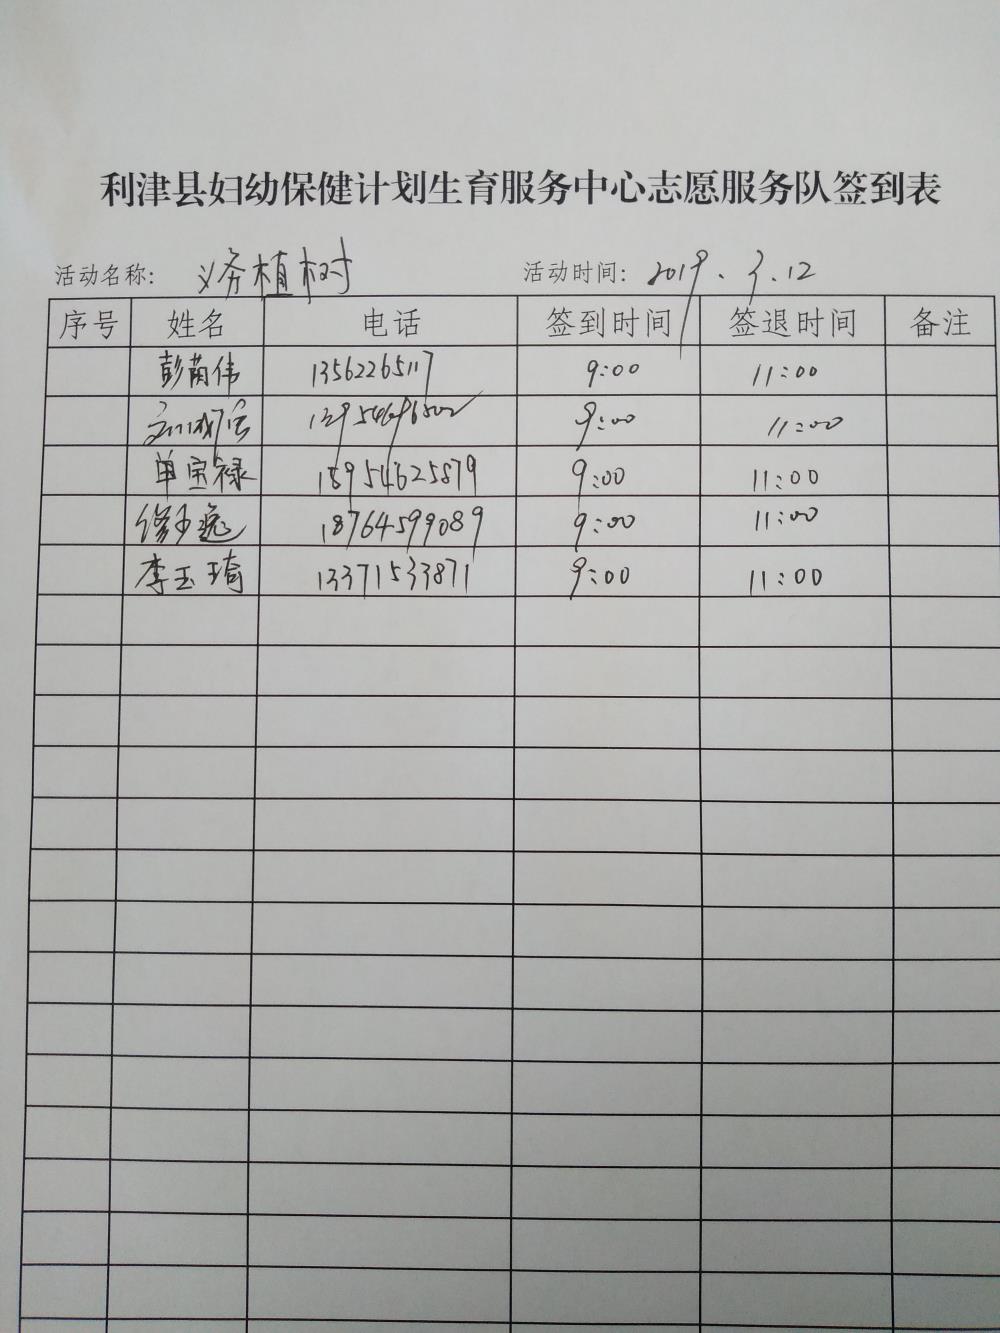 利津县妇幼保健计划生育服务中心志愿服务队签到表
活动名称: 义务植树 活动时间: 2019.3.12
序号 姓名 电话 签到时间 签退时间 备注
彭茵伟 13562265117 9:00 11:00
9:00 11:00
单宝禄 18954625879 9:00 11:00
18764599089 9:00 11:00
李玉琦 13371533871 9:00 11:00